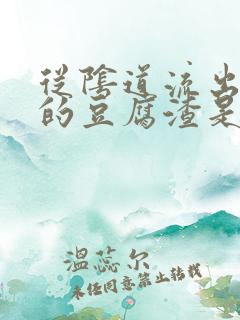 從陰道流出
的豆腐渣是
溫蕊尔
未经同意禁止转载